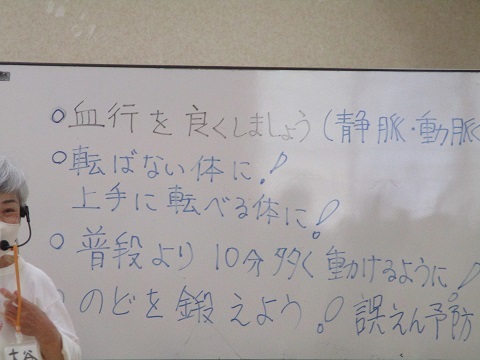 ○血行を良くしましょう(静脈・動脈
○転ばない体に!
上手に転べる体に!
○普段より10分多く動けるように!
○のどを鍛えよう! 誤えん予防